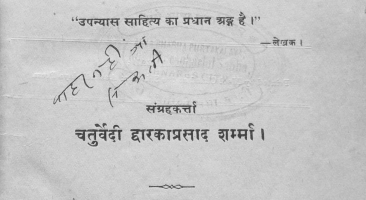 “उपन्यास साहित्य का प्रधान अङ्ग है।”
—लेखक।
संग्रहकर्त्ता
चतुर्वेदी द्वारकाप्रसाद शर्म्मा।